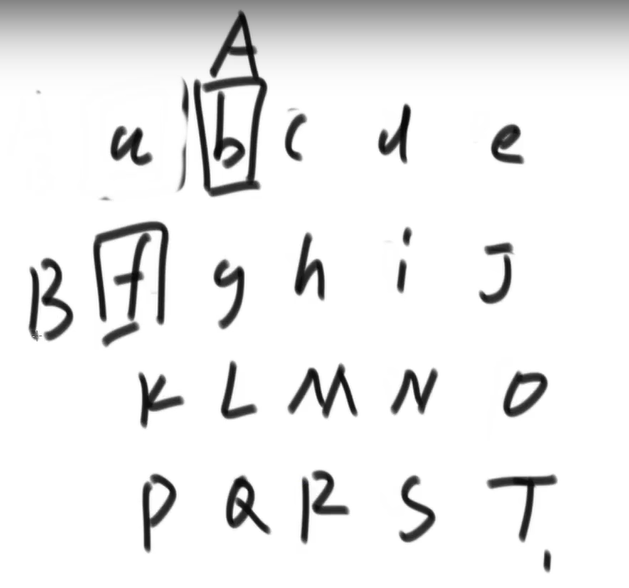 A
a b c d e
B f g h i J
K L M N O
P Q R S T